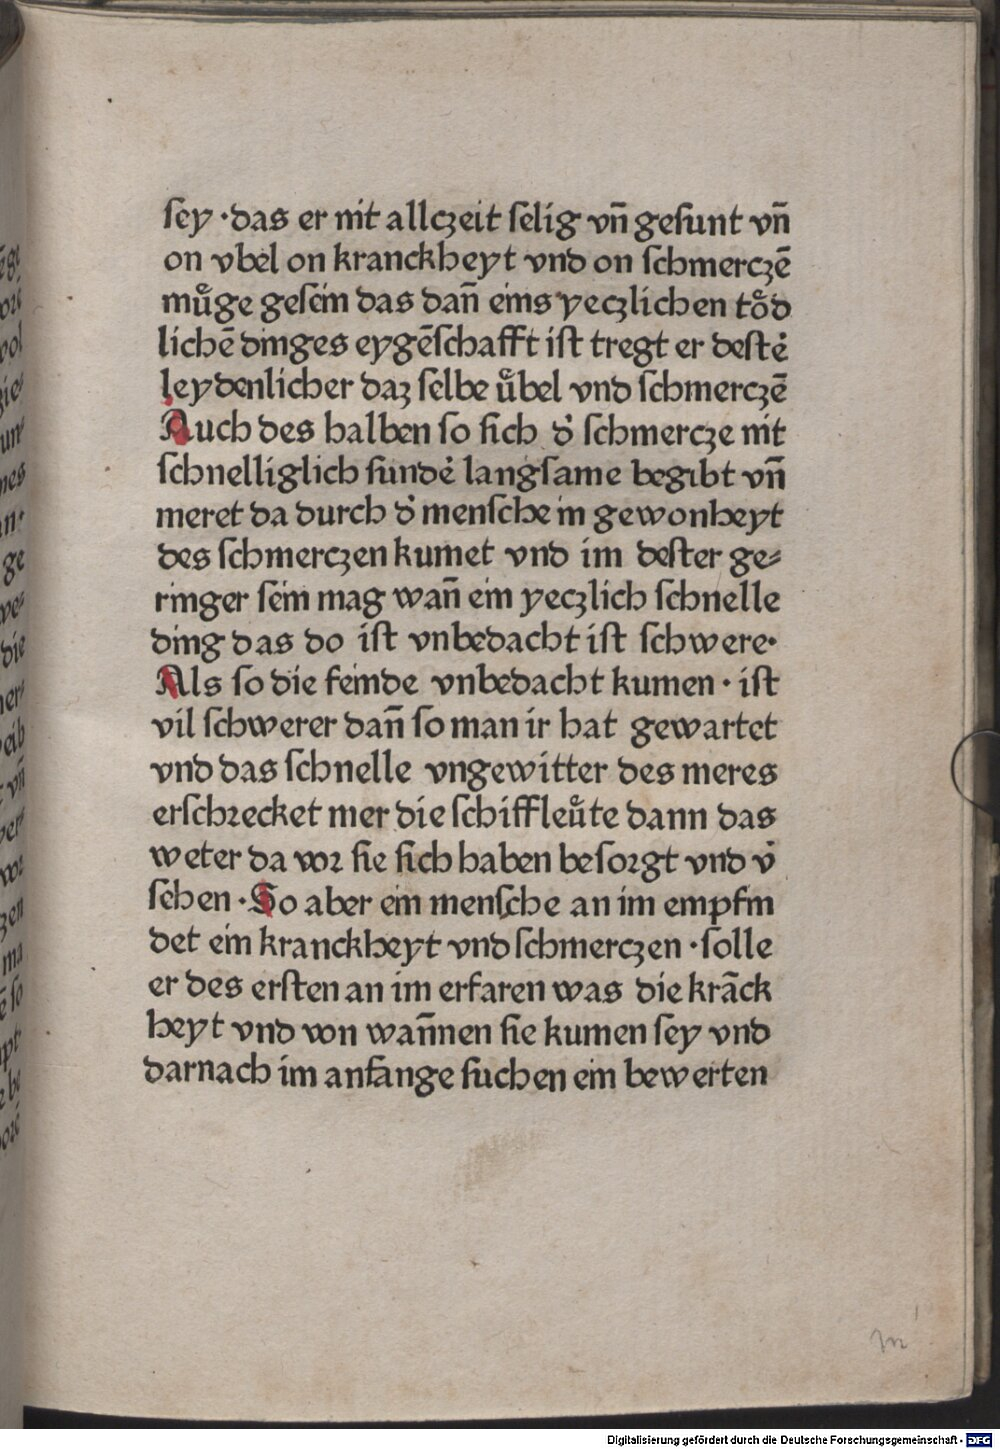 ſey ·das er nit allczeit ſelig vn̄ geſunt vn̄
on vbel on kranckheyt vnd on ſchmerczē
muͤge geſein das dan̄ eins yeczlichen toͤd
lichē dinges eygēſchafft iſt tregt er deſtė
leydenlicher daz ſelbe uͤbel vnd ſchmerczē
Auch des halben ſo ſich d̓ ſchmercze nit
ſchnelliglich ſundė langſame begibt vn̄
meret da durch d̓ menſche in gewonheyt
des ſchmerczen kumet vnd im deſter ge⸗
ringer ſein mag wan̄ ein yeczlich ſchnelle
ding das do iſt vnbedacht iſt ſchwere·
Als ſo die feinde vnbedacht kumen · iſt
vil ſchwerer dan̄ ſo man ir hat gewartet
vnd das ſchnelle vngewitter des meres
erſchꝛecket mer die ſchiffleuͤte dann das
weter da voꝛ ſie ſich haben beſorgt vnd v̓
ſehen · So aber ein menſche an im empfin
det ein kranckheyt vnd ſchmerczen · ſolle
er des erſten an im erfaren was die krāck
heyt vnd von wan̄nen ſie kumen ſey vnd
darnach im anfange ſuchen ein bewerten
Digitalisierung gefördert durch die Deutsche Forschungsgemeinschaft - DFG